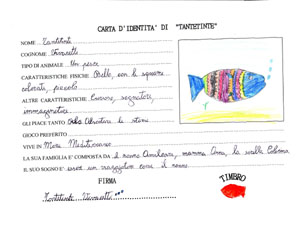 CARTA D'IDENTITA' DI "TANTETINTE"
NOME Tantetinte
COGNOME
TIPO DI ANIMALE Un pesce
CARATTERISTICHE FISICHE Bello, con le squame
colorate, piccolo
ALTRE CARATTERISTICHE Curioso, sognatore,
immaginatore
GLI PIACE TANTO Ascoltare le storie
GIOCO PREFERITO
VIVE IN Mare Mediterraneo
LA SUA FAMIGLIA E' COMPOSTA DA il nonno mamma la sorella
IL SUO SOGNO E' essere un viaggiatore come il nonno.
FIRMA
TIMBRO